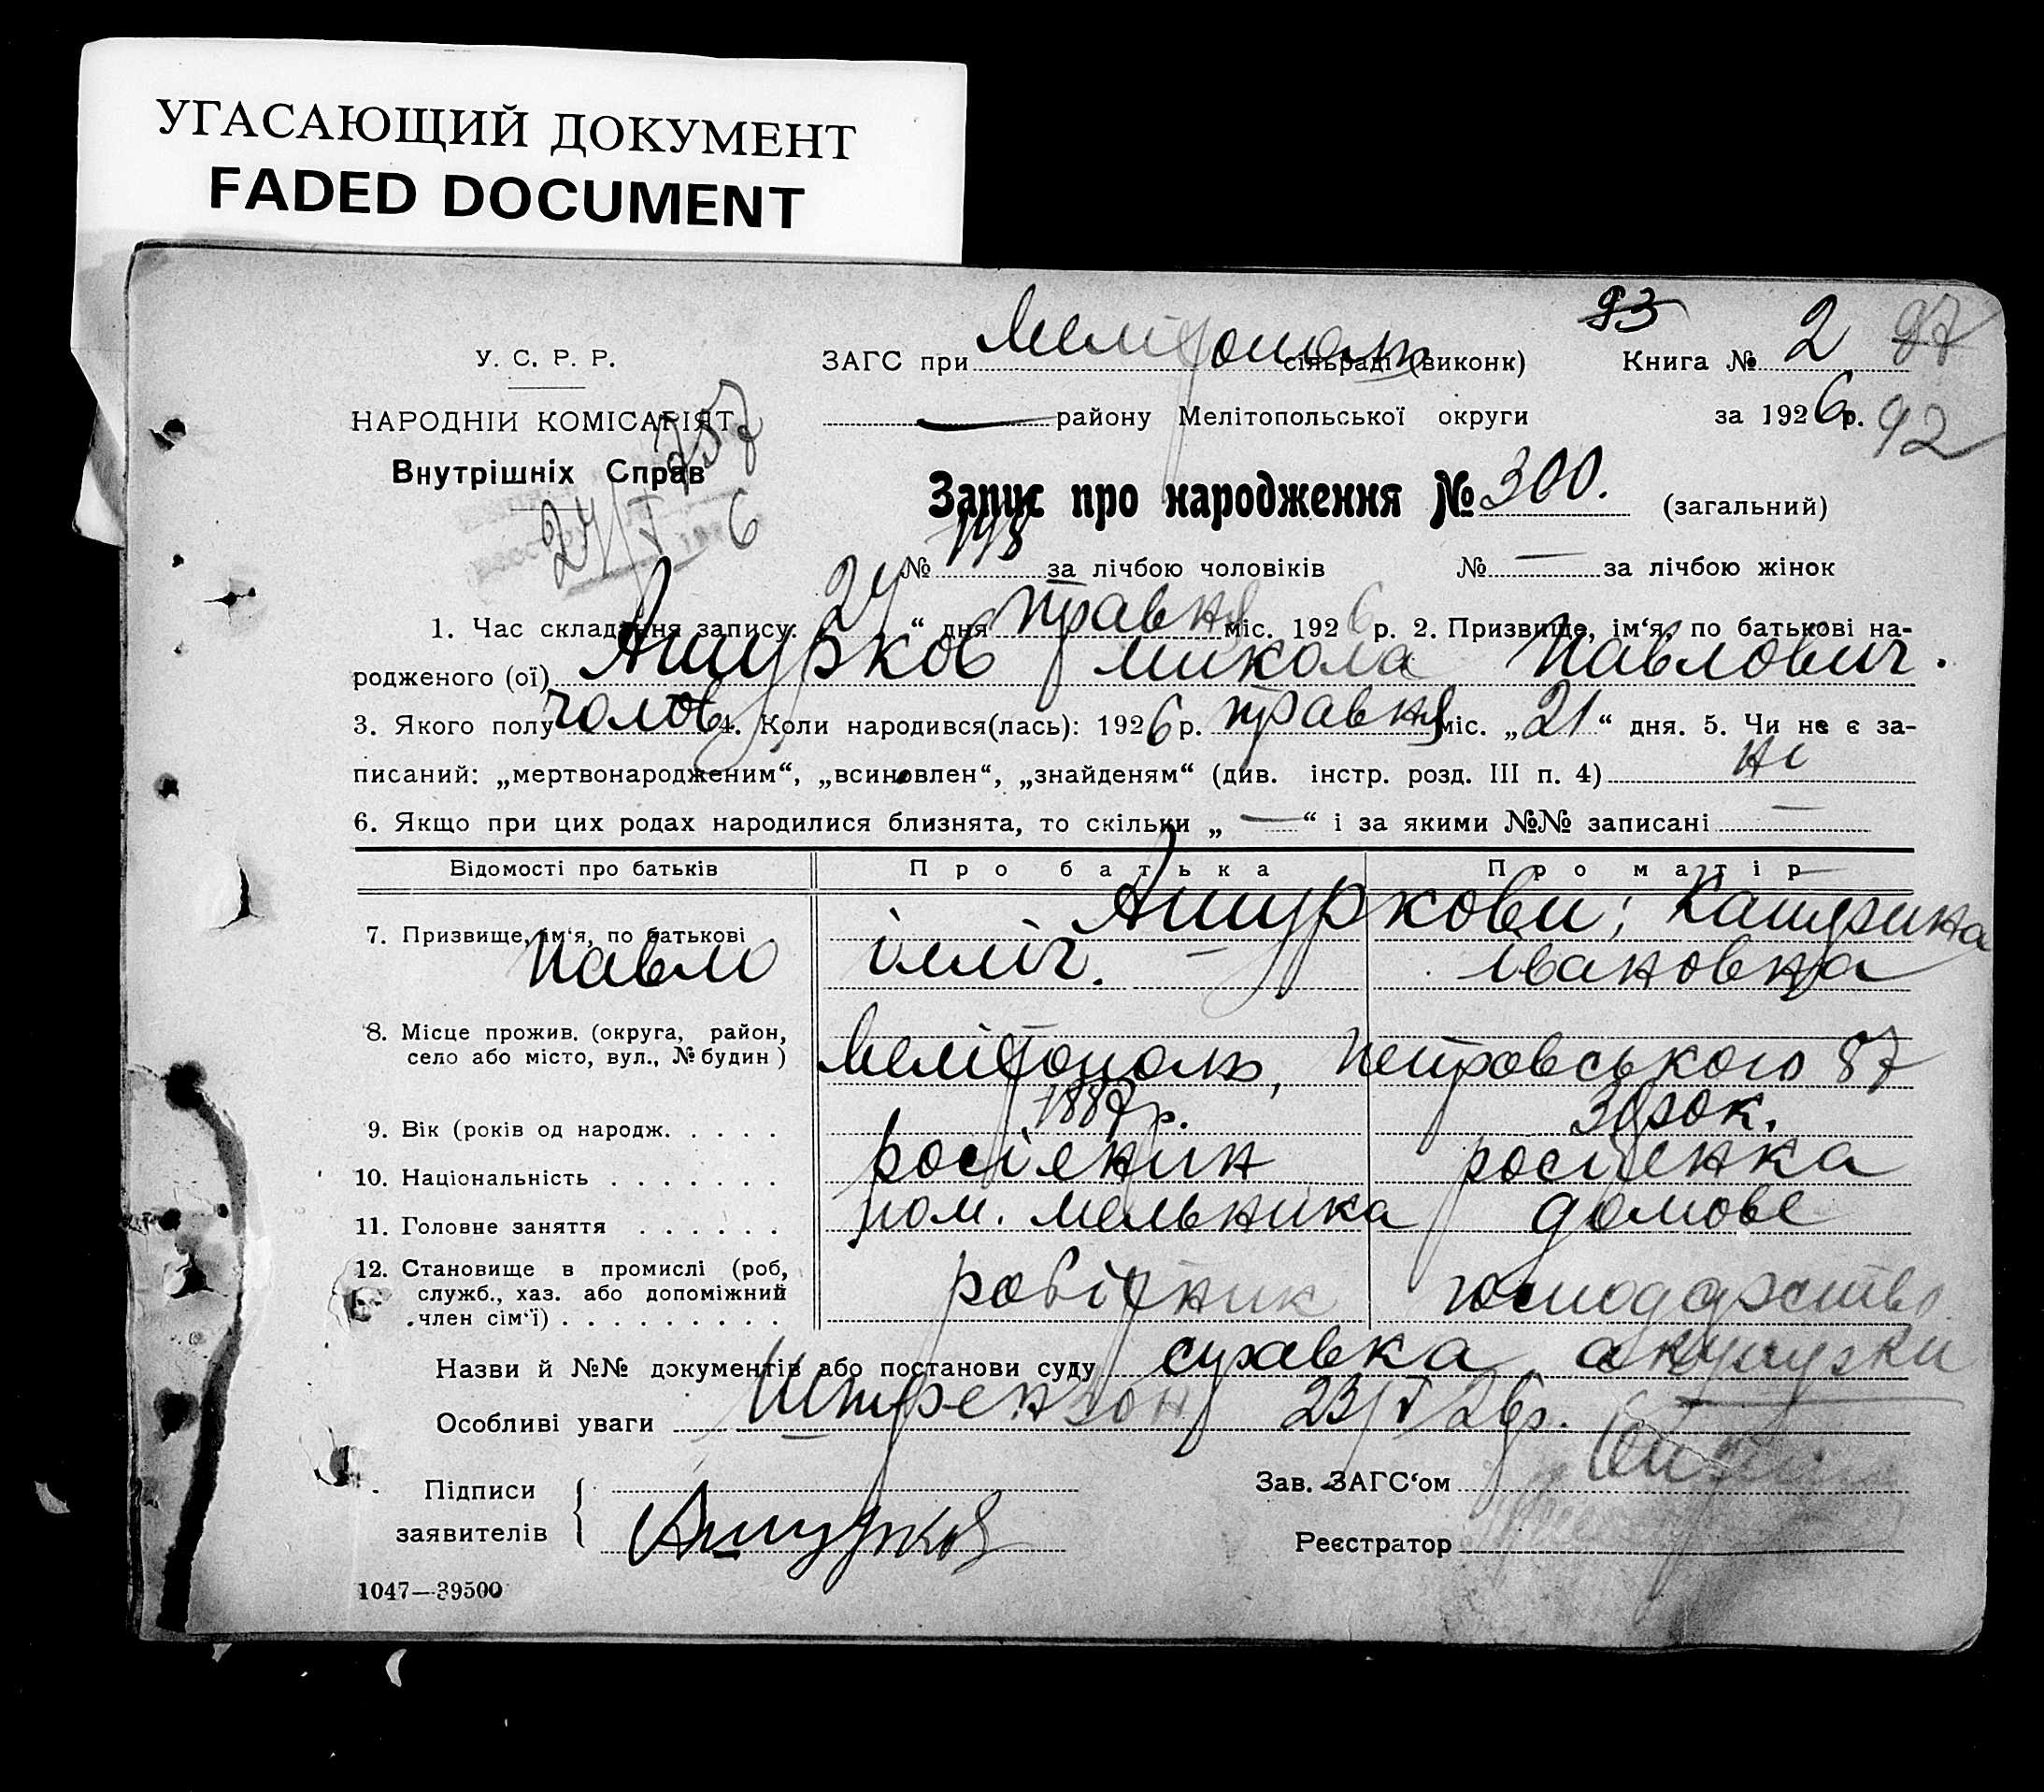 УГАСАЮЩИЙ ДОКУМЕНТ
FADED DOCUMENT
93
У. С. Р. Р.
ЗАГС при Мелітополь сільраді (виконк)
Книга № 2 97
НАРОДНІЙ КОМІСАРІЯТ
району Мелітопольської округи
за 1926 р. 92
Внутрішніх Справ
Запис про народження № 300. (загальний)
24/V 6
№ 148 за лічбою чоловіків № — за лічбою жінок
1. Час складання запису: 24 “ дня травня міс. 1926 р. 2. Призвище, ім‘я, по батькові на-
родженого (ої) Ашурков Микола Павлович.
3. Якого полу чолов 4. Коли народився(лась): 1926 р. травня міс. „21“ дня. 5. Чи не є за-
писаний: „мертвонародженим“, „всиновлен“, „знайденям“ (див. інстр. розд. III п. 4) ні
6. Якщо при цих родах народилися близнята, то скільки „ — “ і за якими №№ записані —
Відомості про батьків Про батька Про матір
Ашуркови; Катерина
7. Призвище, ім‘я, по батькові
Павло Ілліч. — Івановна
8. Місце прожив. (округа, район,
село або місто, вул., № будин) Мелітополь, Петровського 87
9. Вік (років од народж. . . . . 1887 р. 39 рок.
10. Національність . . . . . . . росіянин росіянка
11. Головне заняття . . . . . . пом. мельника домове
12. Становище в промислі (роб,
служб., хаз. або допоміжний робітник господарство
член сім‘ї) . . . . . . . . .
Назви й №№ документів або постанови суду справка акушерки
Особливі уваги Штрензон 23/V 26 р.
Підписи
Зав. ЗАГС‘ом
заявителів Ашурков
Реєстратор
1047—39500